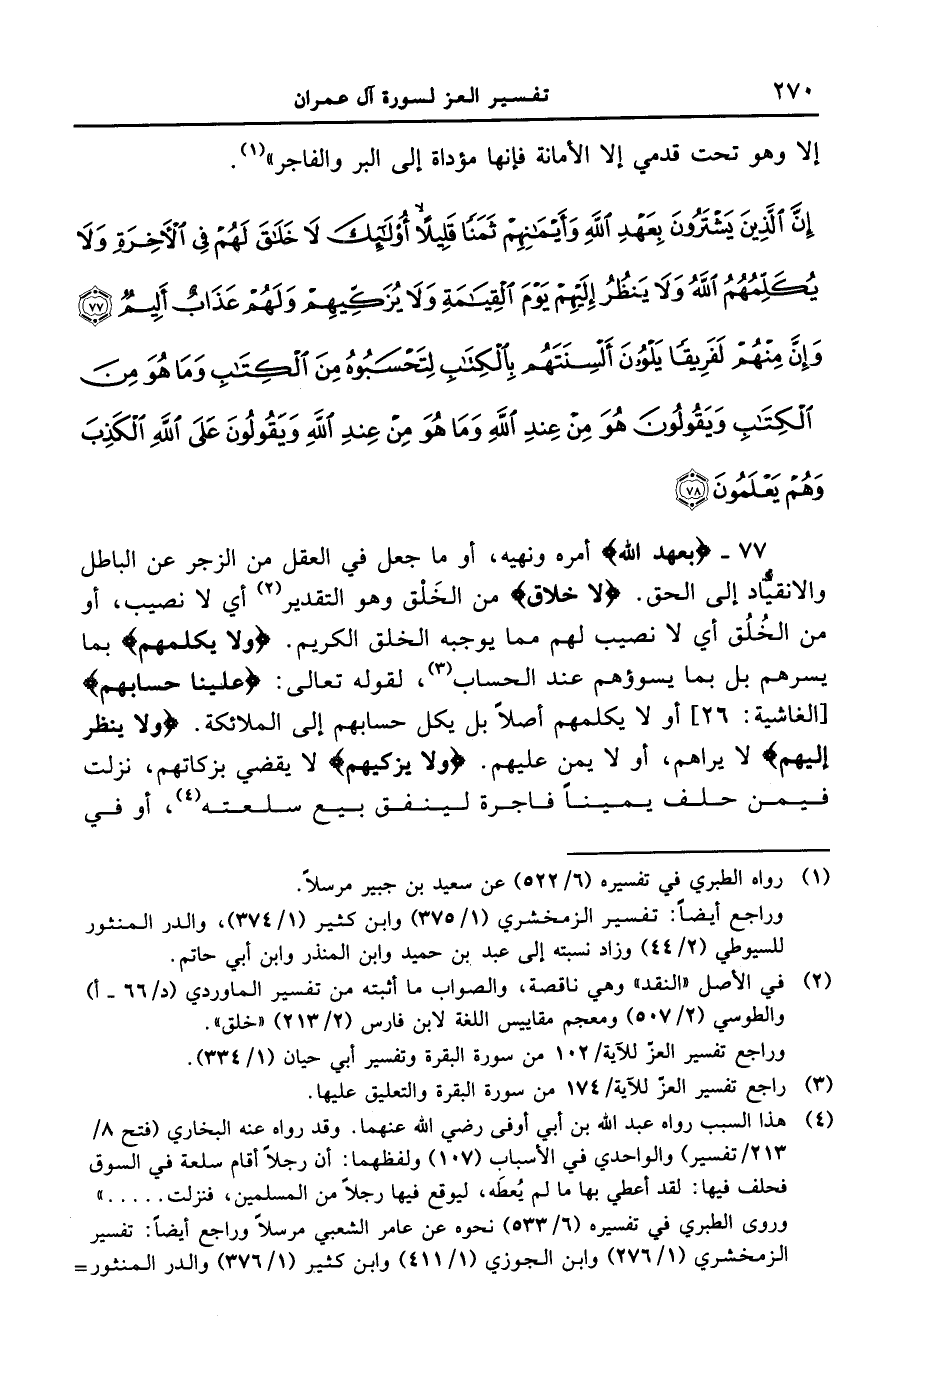 ٢٧٠
تفسير العز لسورة آل عمران
إلا وهو تحت قدمي إلا الأمانة فإنها مؤداة إلى البر والفاجر»(١).
إِنَّ ٱلَّذِينَ يَشْتَرُونَ بِعَهْدِ ٱللَّهِ وَأَيْمَـٰنِهِمْ ثَمَنًا قَلِيلًا أُو۟لَـٰٓئِكَ لَا خَلَـٰقَ لَهُمْ فِى ٱلْـَٔاخِرَةِ وَلَا
يُكَلِّمُهُمُ ٱللَّهُ وَلَا يَنظُرُ إِلَيْهِمْ يَوْمَ ٱلْقِيَـٰمَةِ وَلَا يُزَكِّيهِمْ وَلَهُمْ عَذَابٌ أَلِيمٌ ٧٧
وَإِنَّ مِنْهُمْ لَفَرِيقًا يَلْوُۥنَ أَلْسِنَتَهُم بِٱلْكِتَـٰبِ لِتَحْسَبُوهُ مِنَ ٱلْكِتَـٰبِ وَمَا هُوَ مِنَ
ٱلْكِتَـٰبِ وَيَقُولُونَ هُوَ مِنْ عِندِ ٱللَّهِ وَمَا هُوَ مِنْ عِندِ ٱللَّهِ وَيَقُولُونَ عَلَى ٱللَّهِ ٱلْكَذِبَ
وَهُمْ يَعْلَمُونَ ٧٨
٧٧ ـ ﴿بعهد الله﴾ أمره ونهيه، أو ما جعل في العقل من الزجر عن الباطل
والانقياد إلى الحق. ﴿لا خلاق﴾ من الخَلْق وهو التقدير(٢) أي لا نصيب، أو
من الخُلُق أي لا نصيب لهم مما يوجبه الخلق الكريم. ﴿ولا يكلمهم﴾ بما
يسرهم بل بما يسوؤهم عند الحساب(٣)، لقوله تعالى: ﴿علينا حسابهم﴾
[الغاشية: ٢٦] أو لا يكلمهم أصلاً بل يكل حسابهم إلى الملائكة. ﴿ولا ينظر
إليهم﴾ لا يراهم، أو لا يمن عليهم. ﴿ولا يزكيهم﴾ لا يقضي بزكاتهم، نزلت
فيمن حلف يميناً فاجرة لينفق بيع سلعته(٤)، أو في
(١) رواه الطبري في تفسيره (٦/ ٥٢٢) عن سعيد بن جبير مرسلاً.
وراجع أيضاً: تفسير الزمخشري (١/ ٣٧٥) وابن كثير (١/ ٣٧٤)، والدر المنثور
للسيوطي (٢/ ٤٤) وزاد نسبته إلى عبد بن حميد وابن المنذر وابن أبي حاتم.
(٢) في الأصل «النقد» وهي ناقصة، والصواب ما أثبته من تفسير الماوردي (د/ ٦٦ ـ أ)
والطوسي (٢/ ٥٠٧) ومعجم مقاييس اللغة لابن فارس (٢/ ٢١٣) «خلق».
وراجع تفسير العزّ للآية/ ١٠٢ من سورة البقرة وتفسير أبي حيان (١/ ٣٣٤).
(٣) راجع تفسير العزّ للآية/ ١٧٤ من سورة البقرة والتعليق عليها.
(٤) هذا السبب رواه عبد الله بن أبي أوفى رضي الله عنهما. وقد رواه عنه البخاري (فتح ٨/
٢١٣/ تفسير) والواحدي في الأسباب (١٠٧) ولفظهما: أن رجلاً أقام سلعة في السوق
فحلف فيها: لقد أعطي بها ما لم يُعطَه، ليوقع فيها رجلاً من المسلمين، فنزلت.....»
وروى الطبري في تفسيره (٦/ ٥٣٣) نحوه عن عامر الشعبي مرسلاً وراجع أيضاً: تفسير
الزمخشري (١/ ٢٧٦) وابن الجوزي (١/ ٤١١) وابن كثير (١/ ٣٧٦) والدر المنثور=